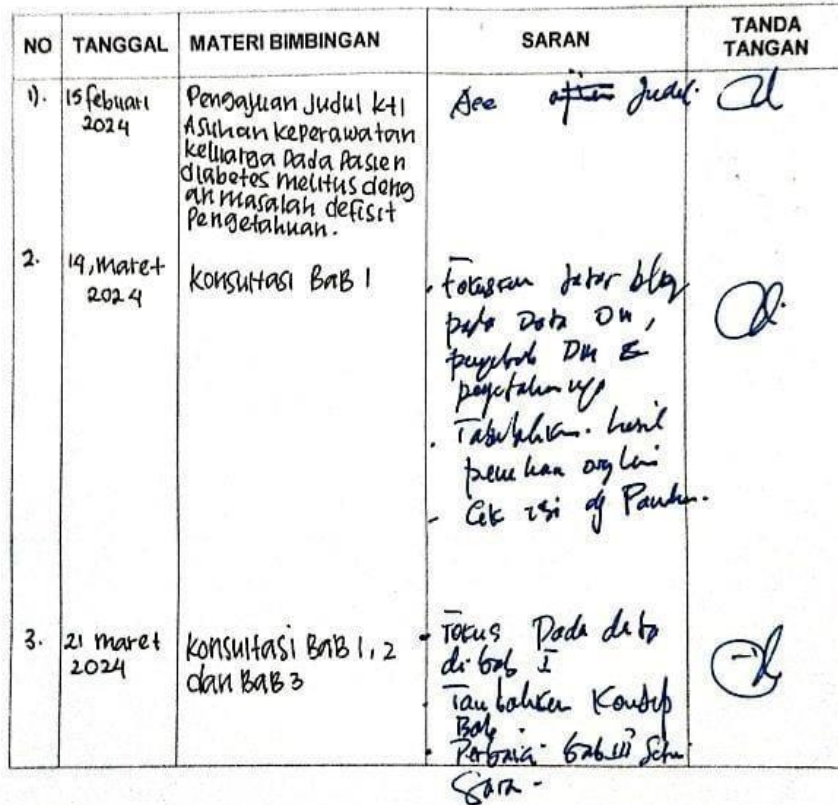 NO TANGGAL MATERI BIMBINGAN SARAN TANDA TANGAN
1). 15 februari 2024
Pengajuan Judul KTI
Asuhan keperawatan
keluarga Pada Pasien
diabetes melitus deng
an masalah defisit
Pengetahuan.
Acc Judul.
2. 19, maret 2024
konsultasi BAB 1
pada Data DM,
DM &
Tambahkan hasil
Cek isi dg Panduan.
3. 21 maret 2024
konsultasi BAB 1, 2
dan BAB 3
Fokus Pada data
di bab I
Tambahkan Konsep
Bab
bab III
Saran -